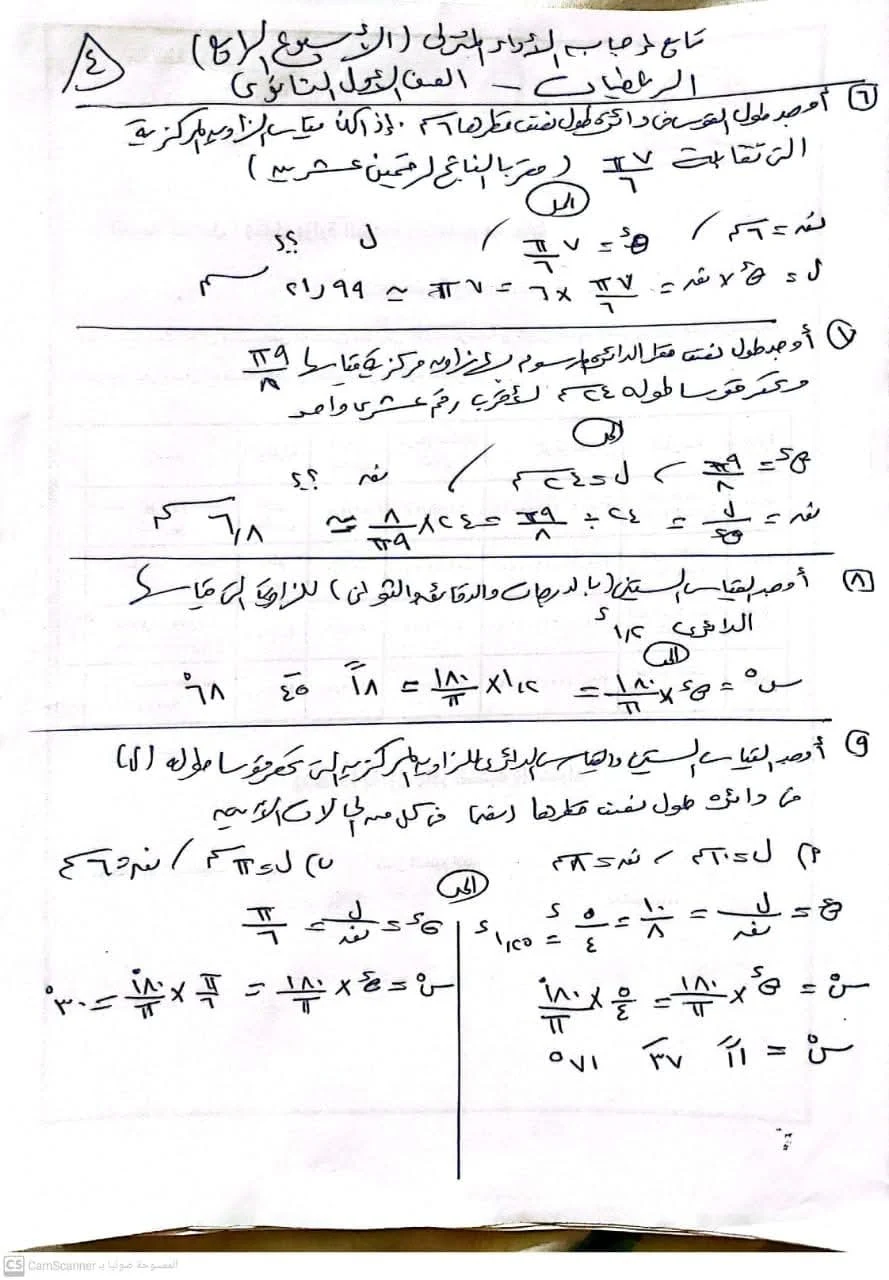 تابع إجابة الأداء المنزلى (الأسبوع الرابع)
٤
الرياضيات - الصف الأول الثانوى
٦ أوجد طول القوس فى دائرة طول نصف قطرها ٦ سم إذا كان قياس الزاوية المركزية
التى تقابله ٧π/٦ (مقرباً الناتج لرقمين عشريين)
الحل
نق = ٦ سم / θء = ٧π/٦ / ل ؟؟
ل = θء × نق = ٧π/٦ × ٦ = ٧π ≃ ٢١٫٩٩ سم
٧ أوجد طول نصف قطر الدائرة المرسوم بها زاوية مركزية قياسها ٩π/٨
وتحصر قوساً طوله ٢٤ سم لأقرب رقم عشرى واحد
الحل
θء = ٩π/٨ / ل = ٢٤ سم / نق ؟؟
نق = ل/θء = ٢٤ ÷ ٩π/٨ = ٢٤ × ٨/٩π ≃ ٦٫٨ سم
٨ أوجد القياس الستينى (بالدرجات والدقائق والثوانى) للزاوية التى قياسها
الدائرى ١٫٢ء
الحل
س° = θء × ١٨٠/π = ١٫٢ × ١٨٠/π = ١٨ً ٤٥َ ٦٨°
٩ أوجد القياس الستينى والقياس الدائرى للزاوية المركزية التى تحصر قوساً طوله (ل)
فى دائرة طول نصف قطرها (نق) فى كل من الحالات الآتية
٢) ل = ١٠ سم / نق = ٨ سم ب) ل = π سم / نق = ٦ سم
الحل
θء = ل/نق = ١٠/٨ = ٥/٤ء = ١٫٢٥ء
س° = θء × ١٨٠/π = ٥/٤ × ١٨٠°/π
س° = ١١ً ٣٧َ ٧١°
θء = ل/نق = π/٦
س° = θء × ١٨٠/π = π/٦ × ١٨٠°/π = ٣٠°
CS CamScanner الممسوحة ضوئيا بـ